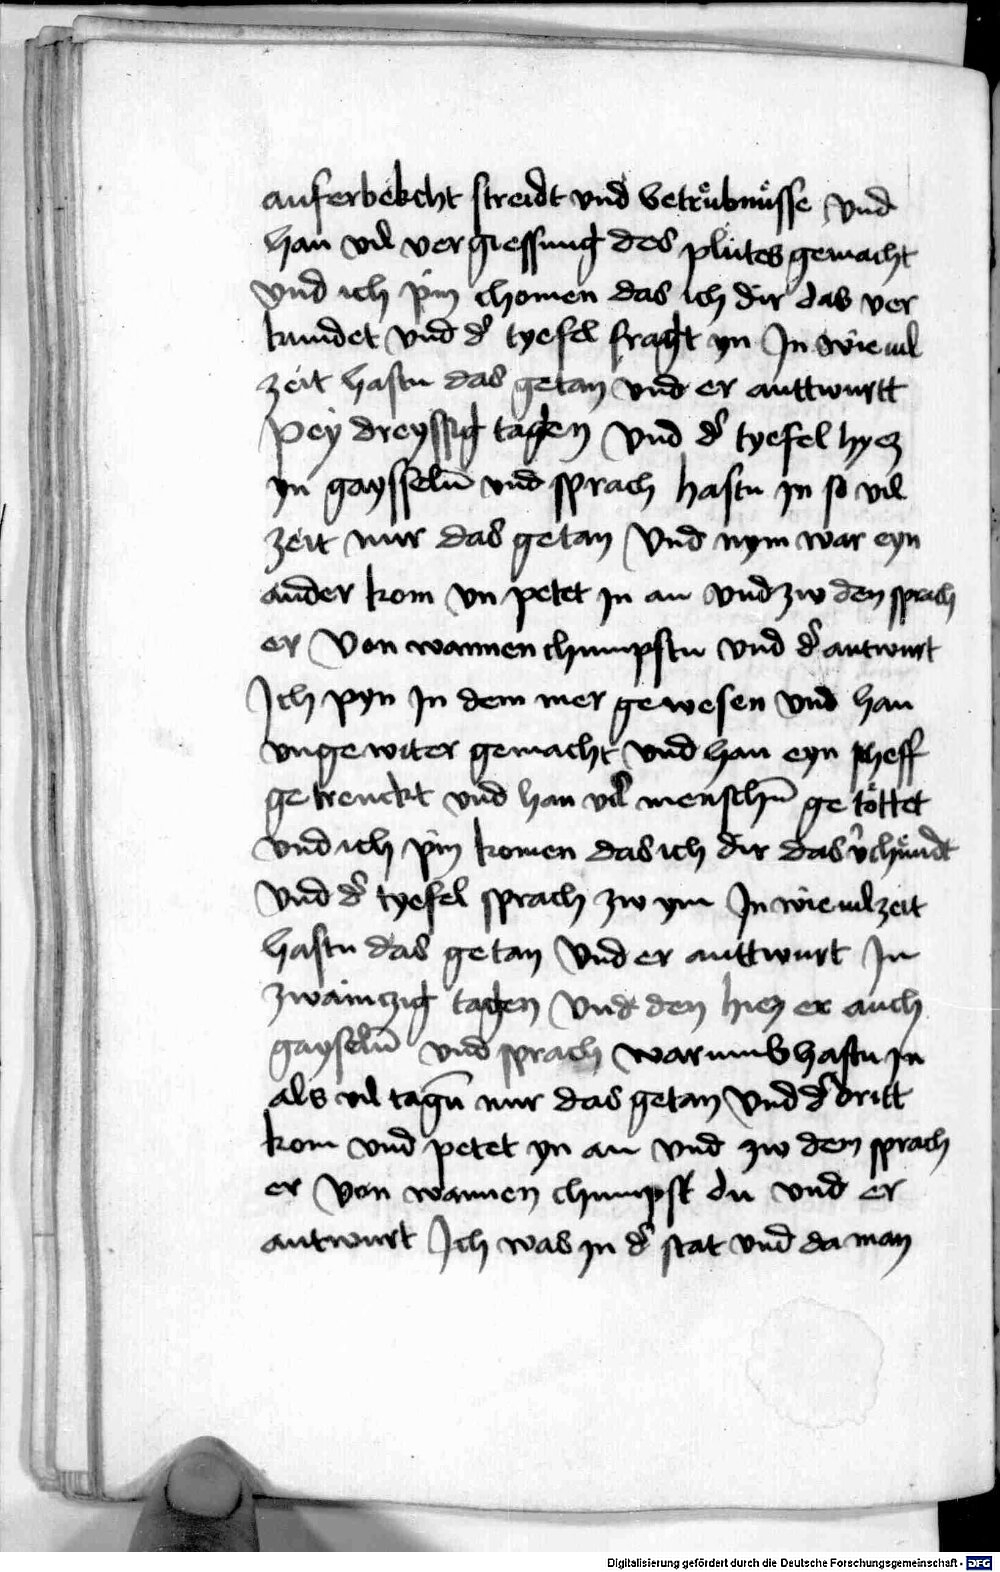 auferbekcht streidt vnd betruͤbnuͤsse vnd
han vil vergiessung des plutes gemacht
vnd ich pin chomen das ich dir das ver
kundet vnd dˀ tyefel fragt yn In wie uil
zeit hastu das getan vnd er anttwurtt
Pey dreyssig tagen vnd dˀ tyefel hyez
yn gaysseln̄ vnd sprach hastu in so vil
zeit nur das getan Vnd nym war eyn
ander kom vn petet in an vnd zw den sprach
er Von wannen chumpstu vnd dˀ antwurt
Ich pyn In dem mer gewesen vnd han
vngewiter gemacht vnd han eyn scheff
getrenckt vnd han vil menschn̄ getoͤttet
vnd ich pin komen das ich dir das vˀchuͤndt
Vnd dˀ tyefel sprach zw ym In wie uil zeit
hastu das getan Vnd er anttwurt In
zwainczig tagen Vnd den hiez er auch
gayseln̄ vnd sprach warumb hastu in
als vil tagn̄ nur das getan Vnd dˀ dritt
kom vnd petet yn an vnd zw dem sprach
er Von wannen chumpst du vnd er
antwurt Ich was in dˀ stat vnd da man
Digitalisierung gefördert durch die Deutsche Forschungsgemeinschaft - DFG